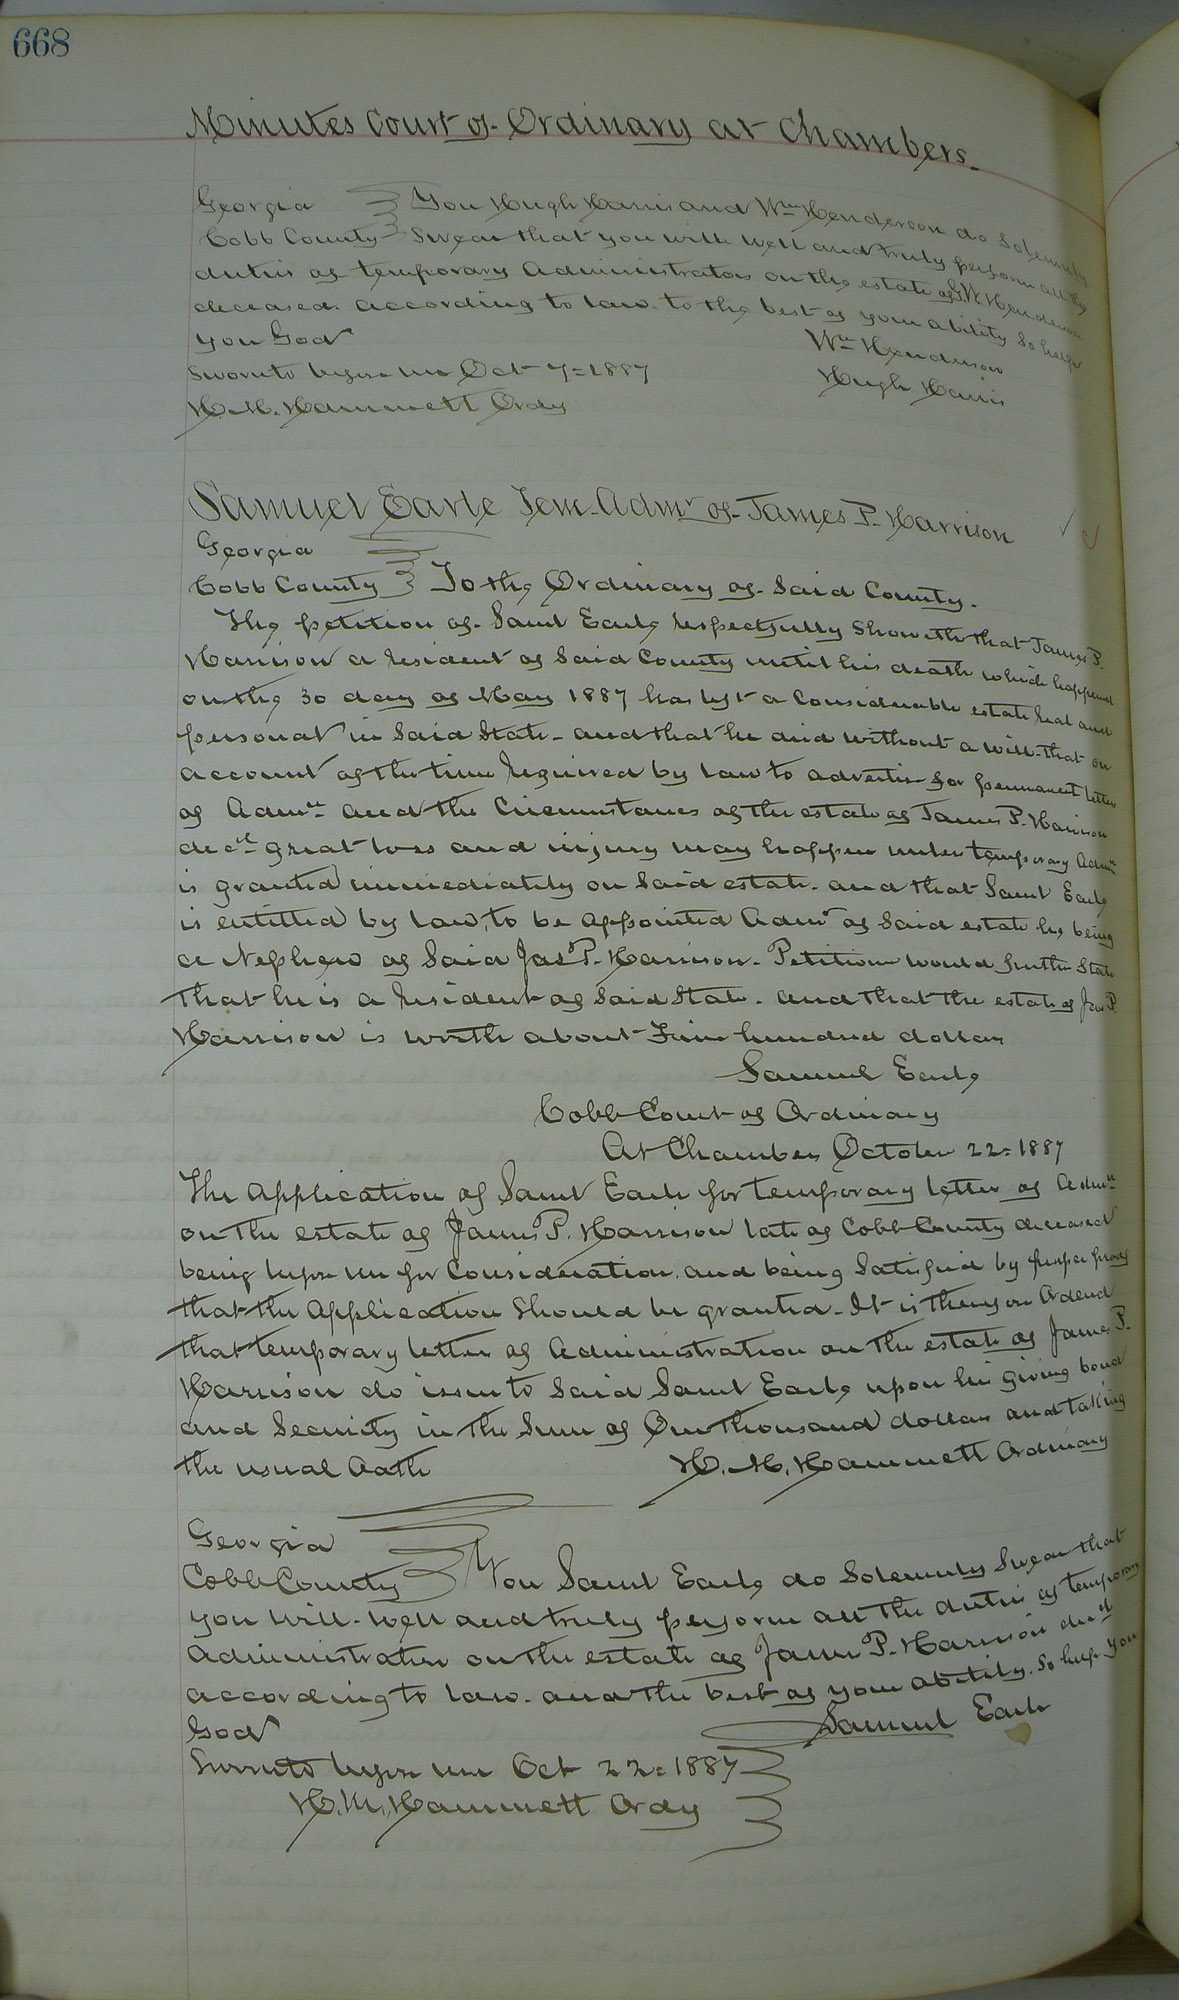 668
Minutes Court of Ordinary at Chambers.
Georgia You Hugh Harris and Wm Henderson do Solemnly
Cobb County Swear that you will well and truly perform all the
duties of temporary Administrators on the estate of Henderson
deceased according to law to the best of your ability So help
you God
Wm Henderson
Sworn to before me Oct 7=1887
Hugh Harris
H. M. Hammett Ordy
Samuel Earle Tem. Admr of James P. Harrison
Georgia
Cobb County To the Ordinary of Said County.
The petition of Saml Earle respectfully Showeth that James P.
Harrison a resident of Said County until his death which happened
on the 30 day of May 1887 has left a Considerable estate real and
personal in Said State - and that he died without a will - that on
account of the time required by law to advertise for permanent letters
of Admn and the Circumstances of the estate of James P. Harrison
decd great loss and injury may happen unless temporary Admn
is granted immediately on Said estate. and that Saml Earle
is entitled by law, to be appointed Admr of Said estate he being
a Nephew of Said Jas P. Harrison. Petitioner would further State
that he is a resident of Said State. and that the estate of Jas P.
Harrison is worth about hundred dollars
Samuel Earle
Cobb Court of Ordinary
At Chambers October 22=1887
The Application of Saml Earle for temporary letters of Admn
on the estate of James P. Harrison late of Cobb County deceased
being before me for Consideration. and being Satisfied by proper proof
that the Application Should be granted - It is therefore Ordered
that temporary letters of Administration on the estate of James P.
Harrison do issue to Said Saml Earle upon his giving bond
and Security in the Sum of One thousand dollars and taking
the usual Oath H. M. Hammett Ordinary
Georgia
Cobb County You Saml Earle do Solemnly Swear that
you will. well and truly perform all the duties of temporary
Administrator on the estate of James P. Harrison decd
according to law. and the best of your ability. So help you
God
Samuel Earle
Sworn to before me Oct 22=1887
H. M. Hammett Ordy